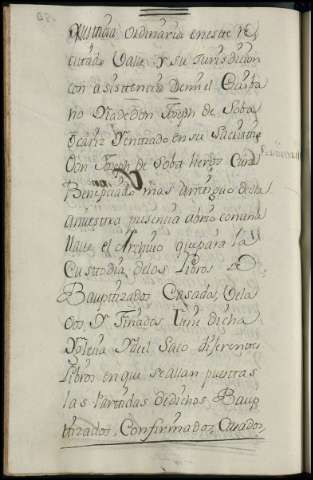 Justicia Ordinaria en este re
citado Valle y su Jurisdicion
con asistencia de mi el Escriba
no Madedon Joseph de Soba
y entrado en su Sacristia
Don Joseph de Soba Cura
Beneficiado mas antiguo de ella
a nuestra presencia abrio con una
llave el Archivo q ay para la
Custodia de los Libros de
Bauptizados, Casados, Vela
dos, y Finados en dicha
Yglesia y del Saco diferentes
Libros en que se allan puestas
las Partidas de dichos Baup
tizados, Confirmados, Casados,